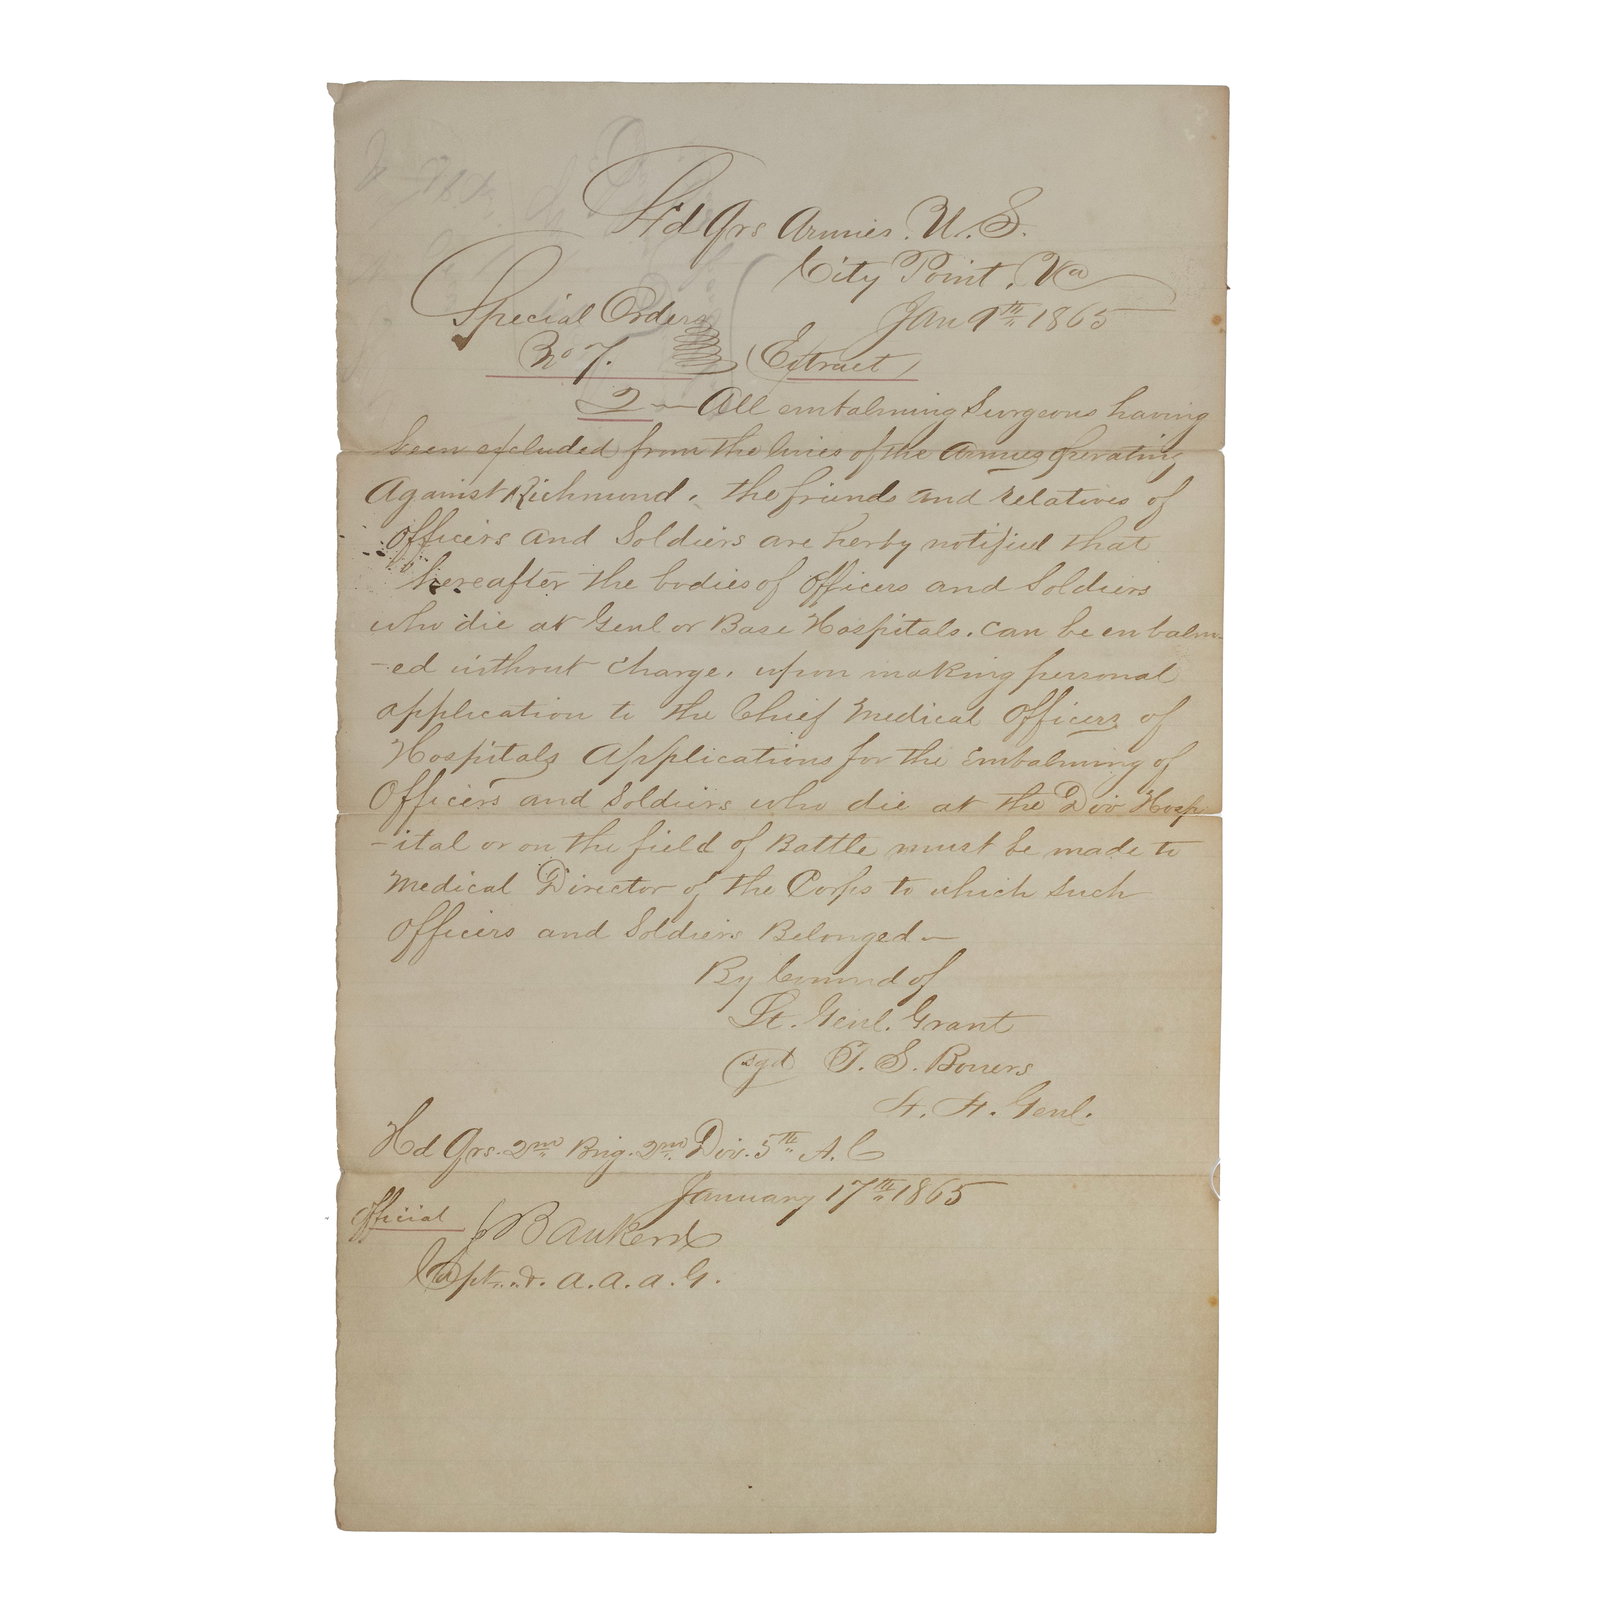 Hd Qrs Armies. U. S.
City Point, Va
Special Orders Jan 9th 1865
No 7. (Extract)
2 — All embalming Surgeons having
been excluded from the lines of the Armies Operating
Against Richmond. the friends and relatives of
Officers and Soldiers are herby notified that
hereafter the bodies of Officers and Soldiers
who die at Genl or Base Hospitals. can be enbalm-
-ed without Charge. upon making personal
application to the Chief Medical Officers of
Hospitals Applications for the Embalming of
Officers and Soldiers who die at the Div Hosp
-ital or on the field of Battle must be made to
Medical Director of the Corps to which Such
Officers and Soldiers Belonged—
By Comnd of
Lt. Genl. Grant
(sgd T. S. Bowers
A. A. Genl.
Hd Qrs. 2nd Brig. 2nd Div. 5th A. C
January 17th 1865
Official
Capt. A. A. A. G.